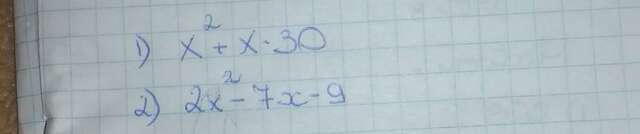 1) x² + x - 30
2) 2x² - 7x - 9